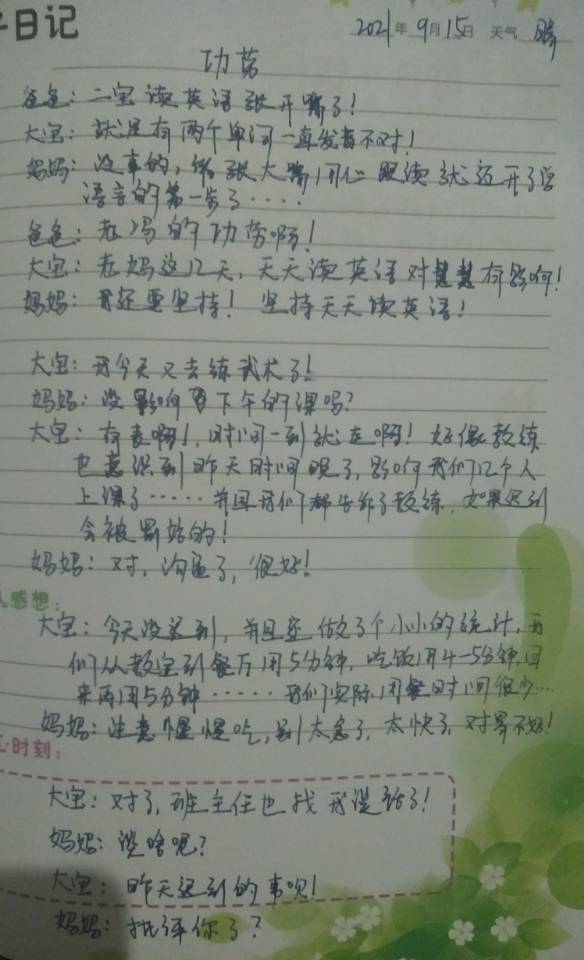 日记 2021年9月15日 天气 晴
功劳
爸爸：二宝读英语张开嘴了！
大宝：就是有两个单词一直发音不对！
妈妈：没事的，能张大嘴用心跟读就迈开了学
语言的第一步了····
爸爸：老妈的功劳啊！
大宝：老妈这几天，天天读英语对慧慧有影响！
妈妈：我还要坚持！坚持天天读英语！
大宝：我今天又去练武术了！
妈妈：没影响下午的课吗？
大宝：有表啊！，时间一到就走啊！好像教练
也意识到昨天时间晚了，影响我们几个人
上课了······并且我们都告诉了教练，如果迟到
会被罚站的！
妈妈：对，沟通了，很好！
人感想：
大宝：今天没迟到，并且还做了个小小的统计，我
们从教室到餐厅用5分钟，吃饭用4-5分钟，回
来再用5分钟······我们实际用餐时间很少···
妈妈：注意慢慢吃，别太急了，太快了，对胃不好！
时刻：
大宝：对了，班主任也找我谈话了！
妈妈：谈啥呢？
大宝：昨天迟到的事呗！
妈妈：批评你了？